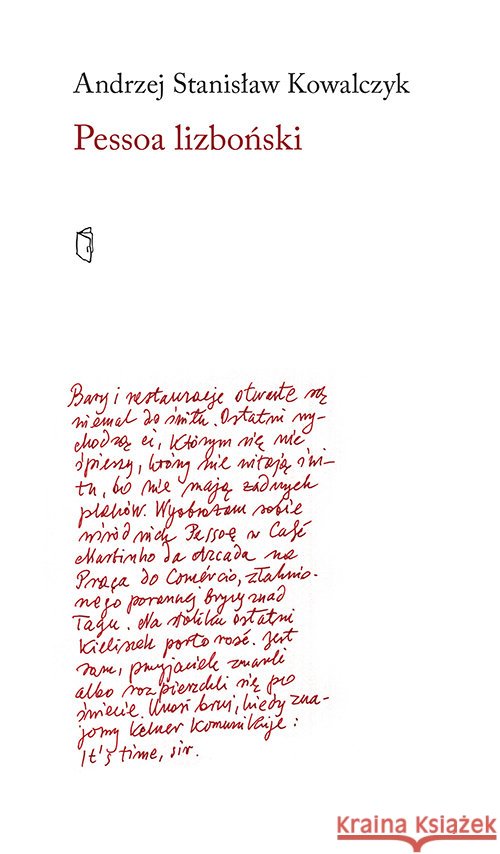 Andrzej Stanisław Kowalczyk
Pessoa lizboński
Bary i restauracje otwarte są
niemal do świtu. Ostatni wy-
chodzą ci, którym się nie
śpieszy, którzy nie witają świ-
tu, bo nie mają żadnych
planów. Wyobrażam sobie
wśród nich Pessoę w Café
Martinho da Arcada na
Praça do Comércio, złaknio-
nego porannej bryzy znad
Tagu. Na stoliku ostatni
kieliszek porto rosé. Jest
sam, przyjaciele zmarli
albo rozpierzchli się po
świecie. Unosi brwi, kiedy zna-
jomy kelner komunikuje:
It's time, sir.
KRAINAKSIAZEK.PL